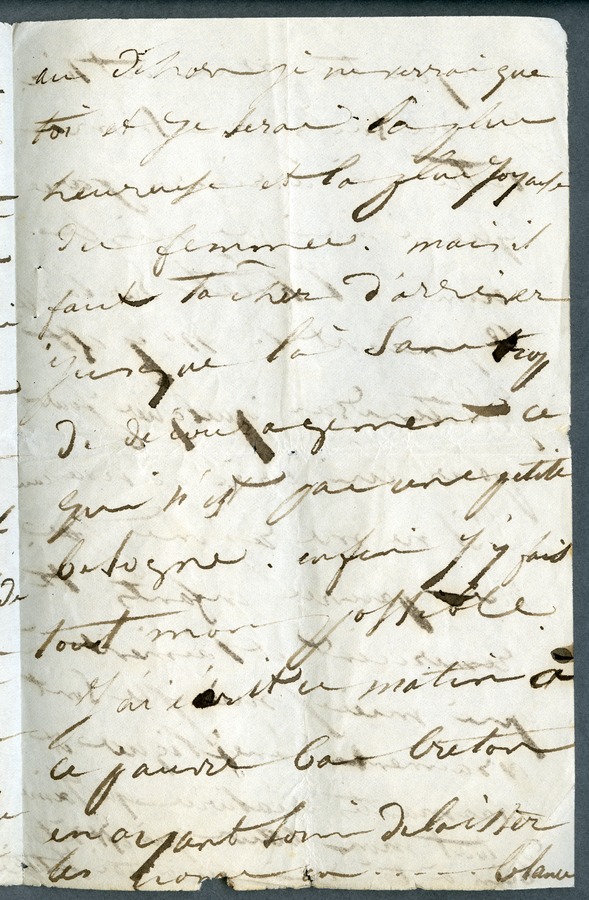 au dehors je ne verrai que
toi et je serai la plus
heureuse et la plus joyeuse
des femmes. mais il
faut tacher d'arriver
jusque là sans trop
de découragement ce
qui n'est pas une petite
besogne. enfin j'y fais
tout mon possible.
J'ai écrit ce matin à
ce pauvre bas breton
en ayant soin de laisser
les noms en blanc